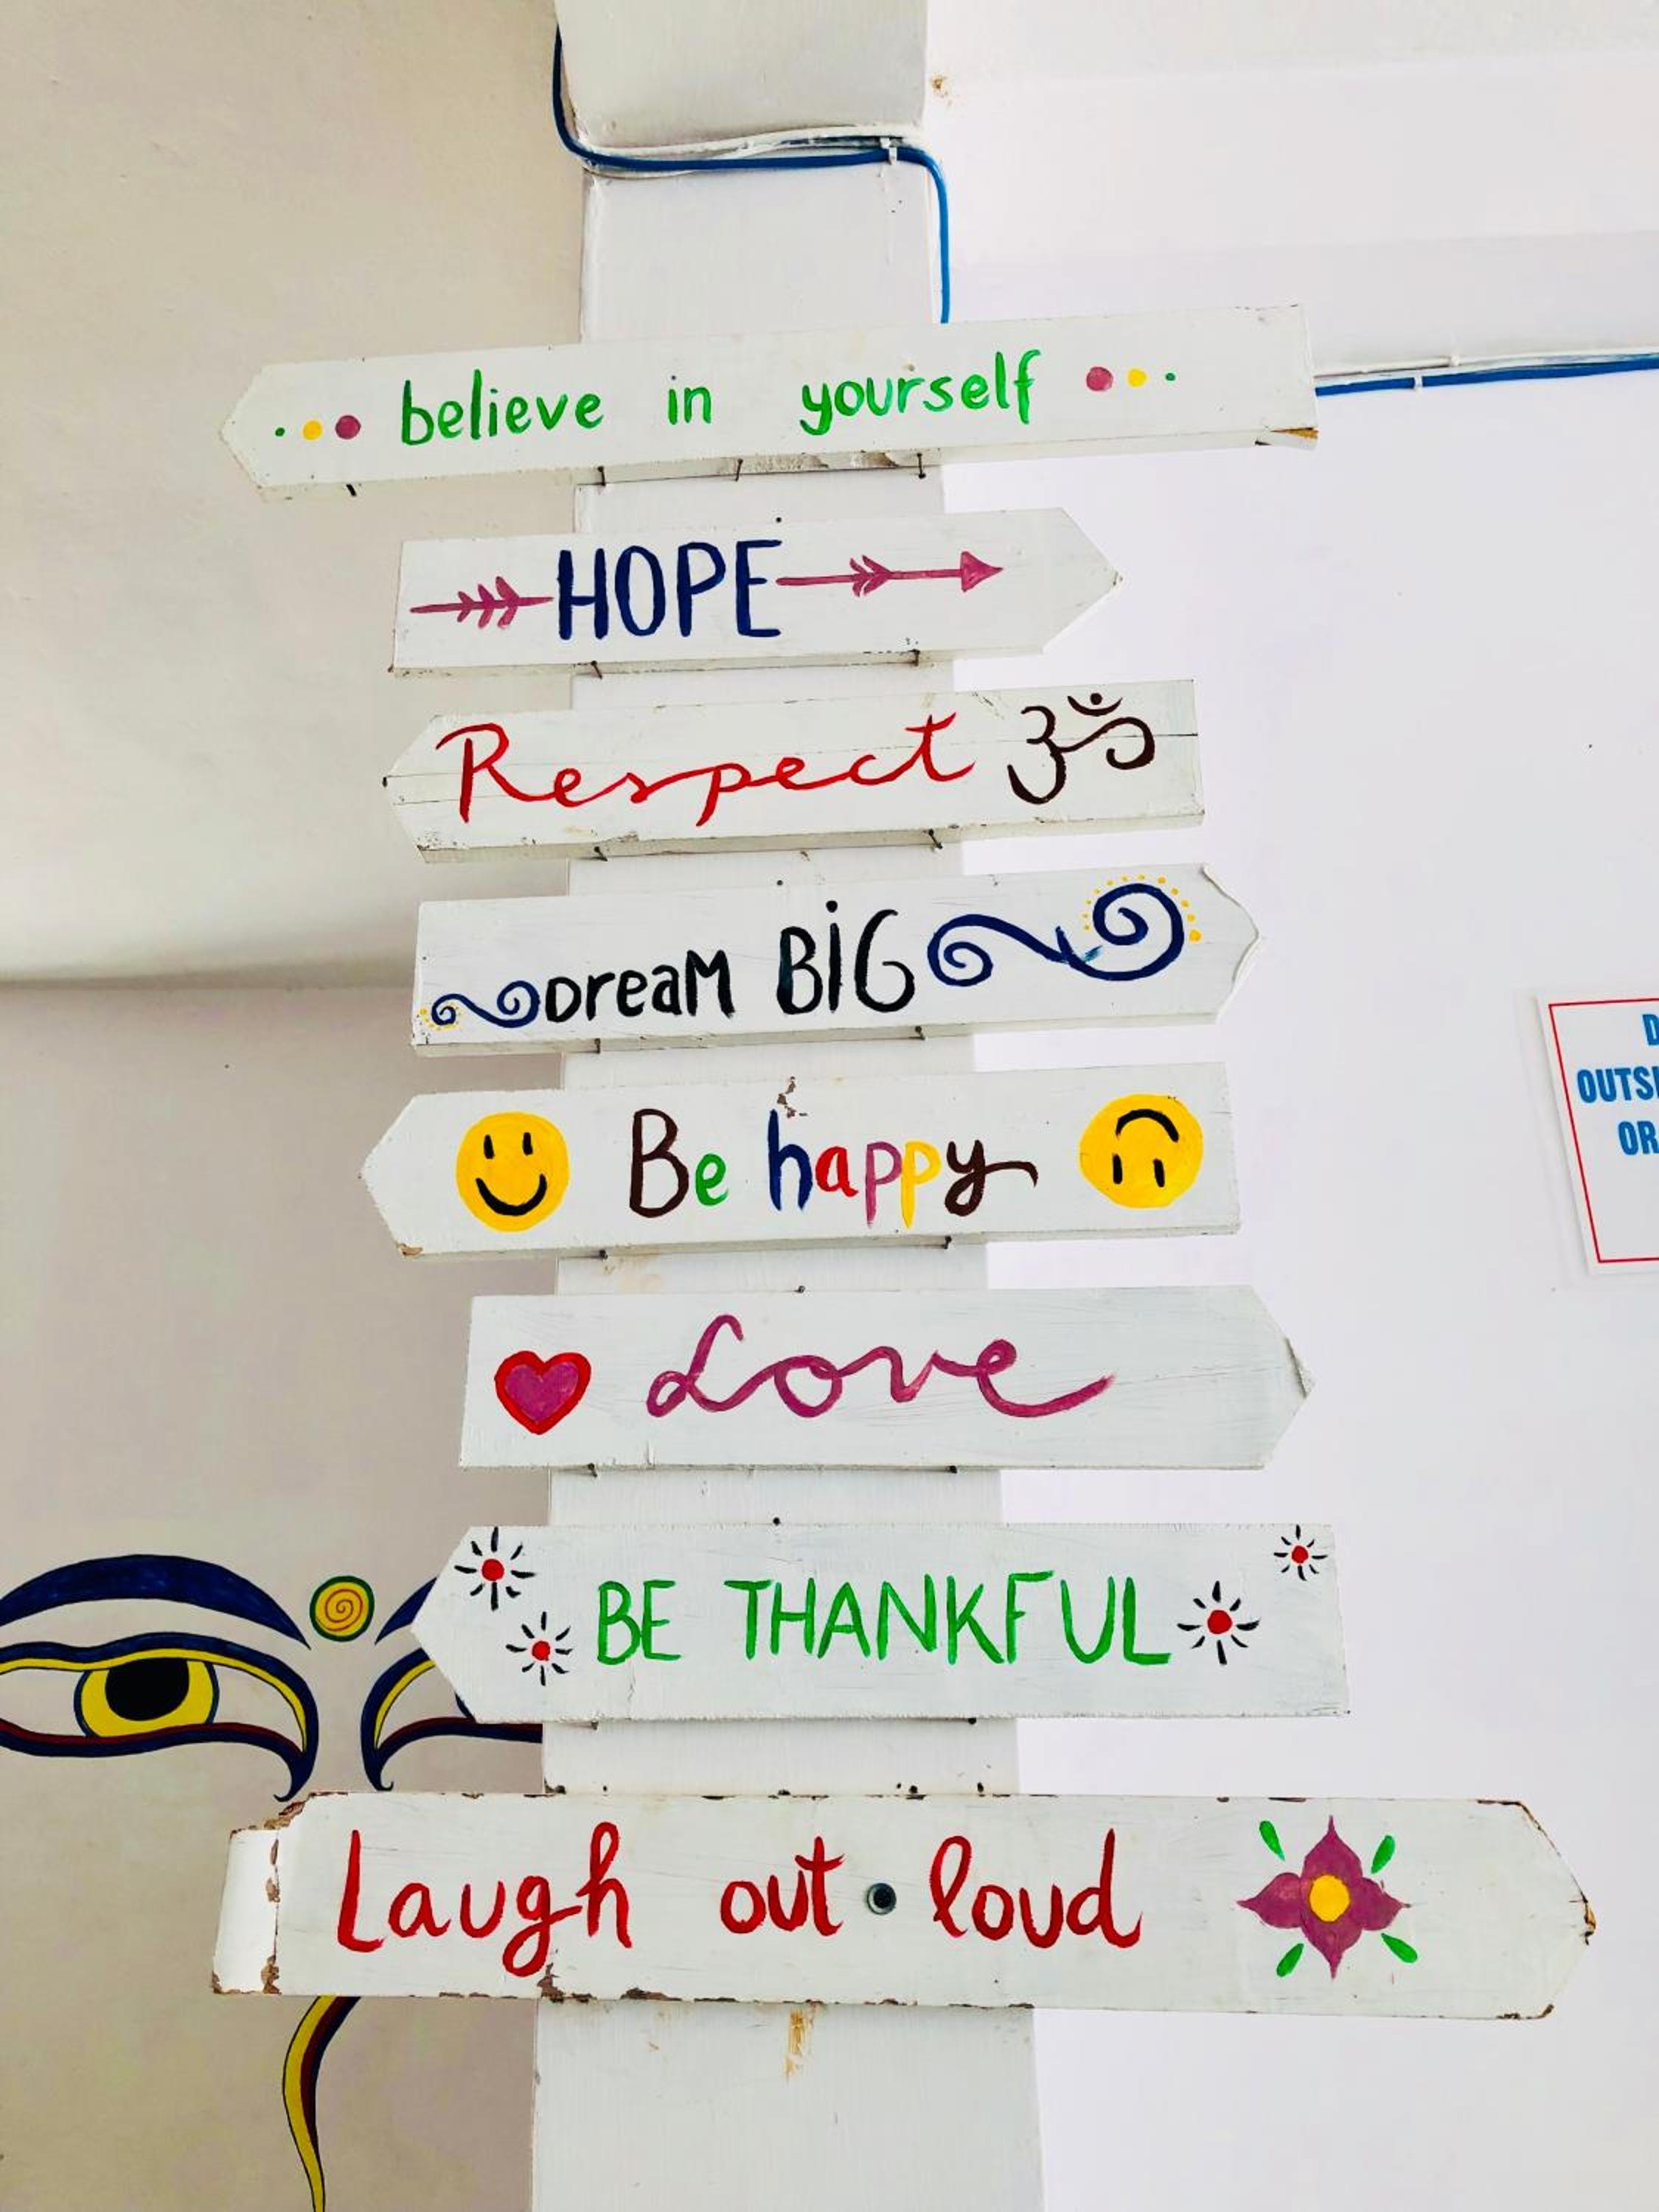 believe in yourself
HOPE
Respect ॐ
DreaM BiG
Be happy
Love
BE THANKFUL
Laugh out loud
OR